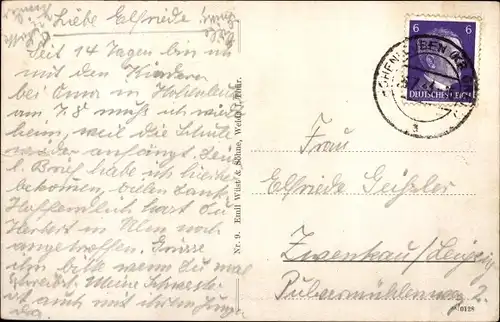 Liebe Elfriede!
Seit 14 Tagen bin ich
mit den Kindern
bei Oma in
am 7.8 muß ich wieder
heim, weil die Schule
wieder anfängt. Dein
l. Brief habe ich hierher
bekommen, vielen Dank
Hoffentlich hast Du
Herbert in Ulm noch
angetroffen. Grüsse
ihn bitte wenn Du mal
schreibst. Meine Schwester
ist auch mit ihrem Jungen
da.
Nr. 9. Emil Wüst & Söhne, Weida i. Thür.
6 6
DEUTSCHES REICH
Frau
Elfriede Geißler
Zwenkau/Leipzig
Pulvermühlenweg 2.
0128